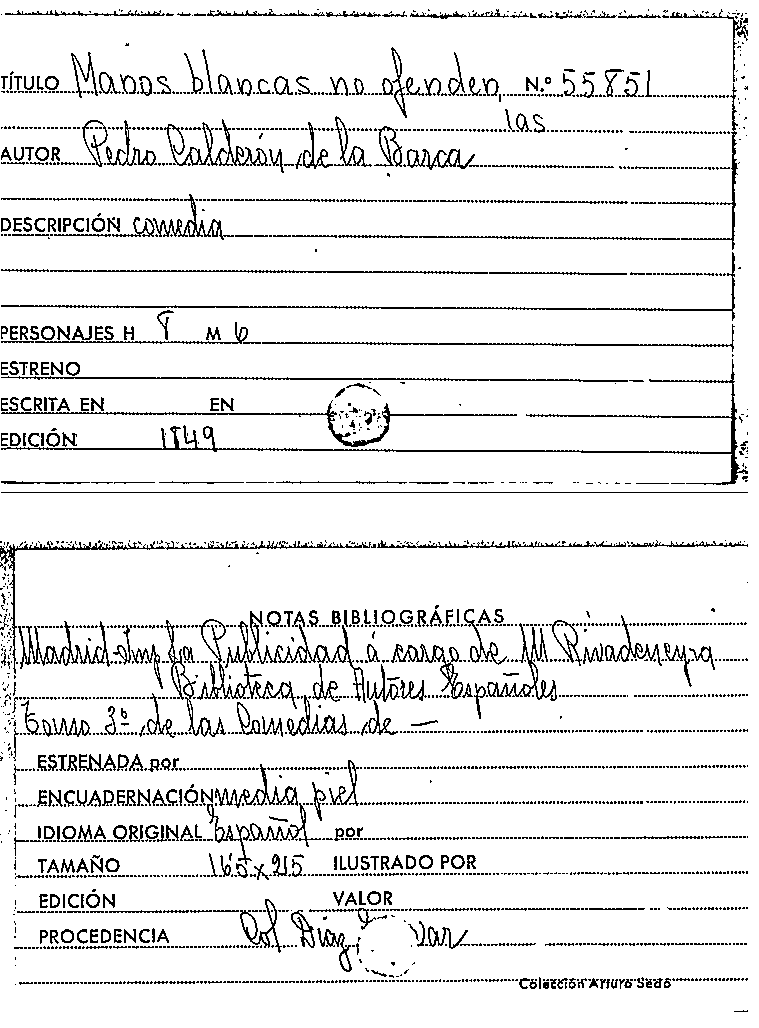 TÍTULO Manos blancas no ofenden, N.º 55851
las
AUTOR Pedro Calderón de la Barca
DESCRIPCIÓN comedia
PERSONAJES H 8 M 6
ESTRENO
ESCRITA EN EN
EDICIÓN 1849
NOTAS BIBLIOGRÁFICAS
Madrid-Imp La Publicidad á cargo de M Rivadeneyra
Biblioteca de Autores Españoles
Tomo 3º de las Comedias de —
ESTRENADA por
ENCUADERNACIÓN media piel
IDIOMA ORIGINAL Español por
TAMAÑO 165x215 ILUSTRADO POR
EDICIÓN VALOR
PROCEDENCIA Col Díaz
Colección Arturo Sedó